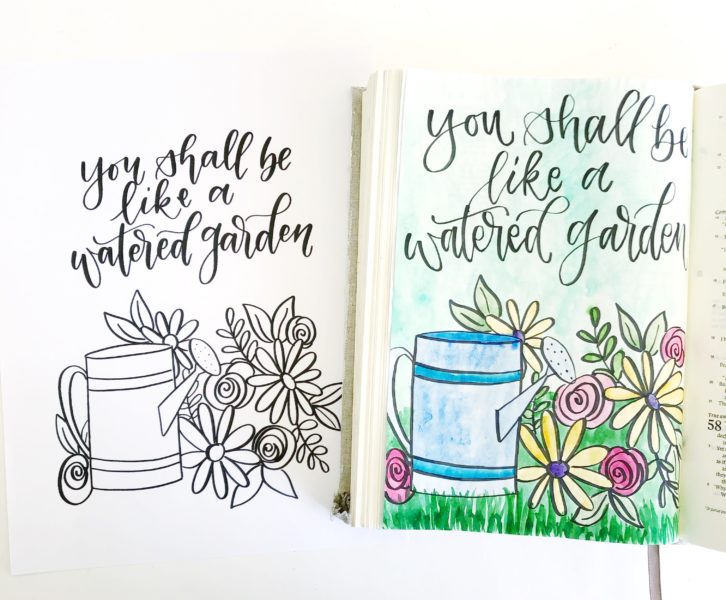 you shall be
like a
watered garden
you shall be
like a
watered garden
58